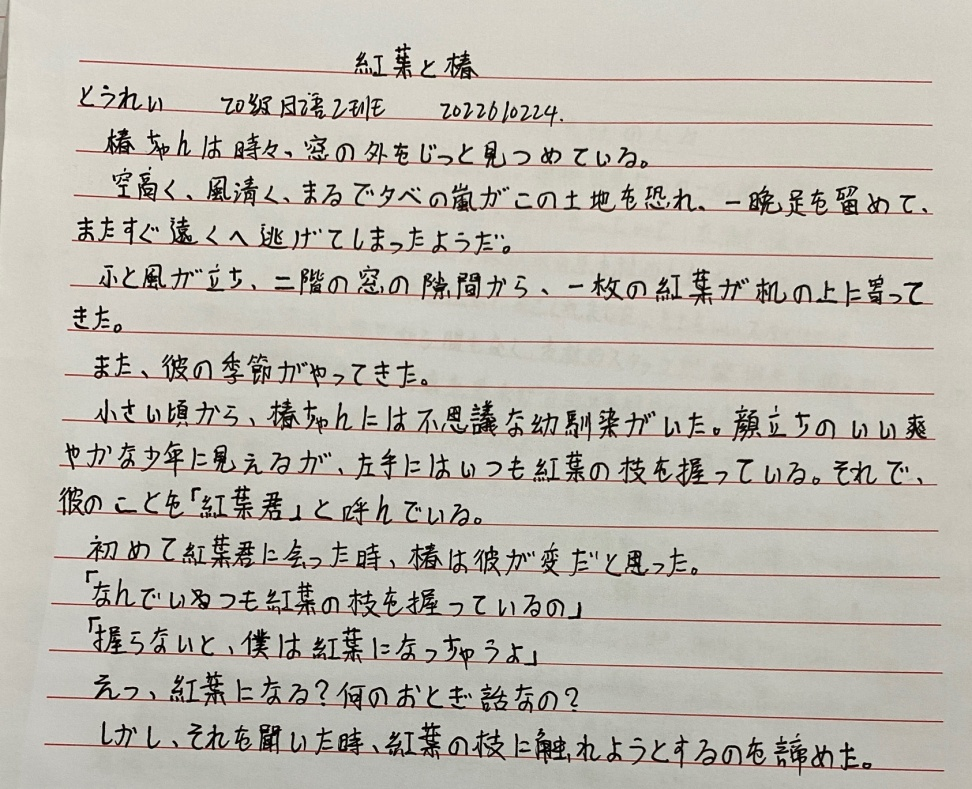 紅葉と椿
とうれい 20級日語2班 2022610224.
椿ちゃんは時々、窓の外をじっと見つめている。
空高く、風清く、まるで夕べの嵐がこの土地を恐れ、一晩足を留めて、
またすぐ遠くへ逃げてしまったようだ。
ふと風が立ち、二階の窓の隙間から、一枚の紅葉が机の上に寄って
きた。
また、彼の季節がやってきた。
小さい頃から、椿ちゃんには不思議な幼馴染がいた。顔立ちのいい爽
やかな少年に見えるが、左手にはいつも紅葉の枝を握っている。それで、
彼のことを「紅葉君」と呼んでいる。
初めて紅葉君に会った時、椿は彼が変だと思った。
「なんでいつも紅葉の枝を握っているの」
「握らないと、僕は紅葉になっちゃうよ」
えっ、紅葉になる?何のおとぎ話なの?
しかし、それを聞いた時、紅葉の枝に触れようとするのを諦めた。